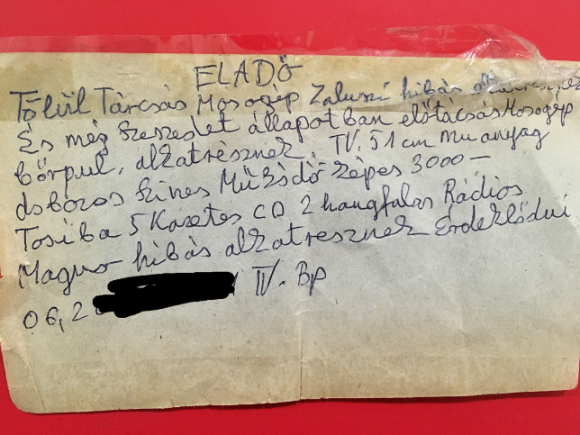 ELADÓ
Tőlűl Tárcsás Mosogép Zaluszi hibás alkatrésznek
És még Szeszelet állapotban előtácsás Mosogép
bőrpul, alkatrésznek, TV. 51 cm Muanyag
doboros Szines Működő képes 3000 —
Tosiba 5 Kazetes CD 2 hangfalas Rádios
Magno hibás alkatresznek Érdeklődni
06,2 IV. Bp